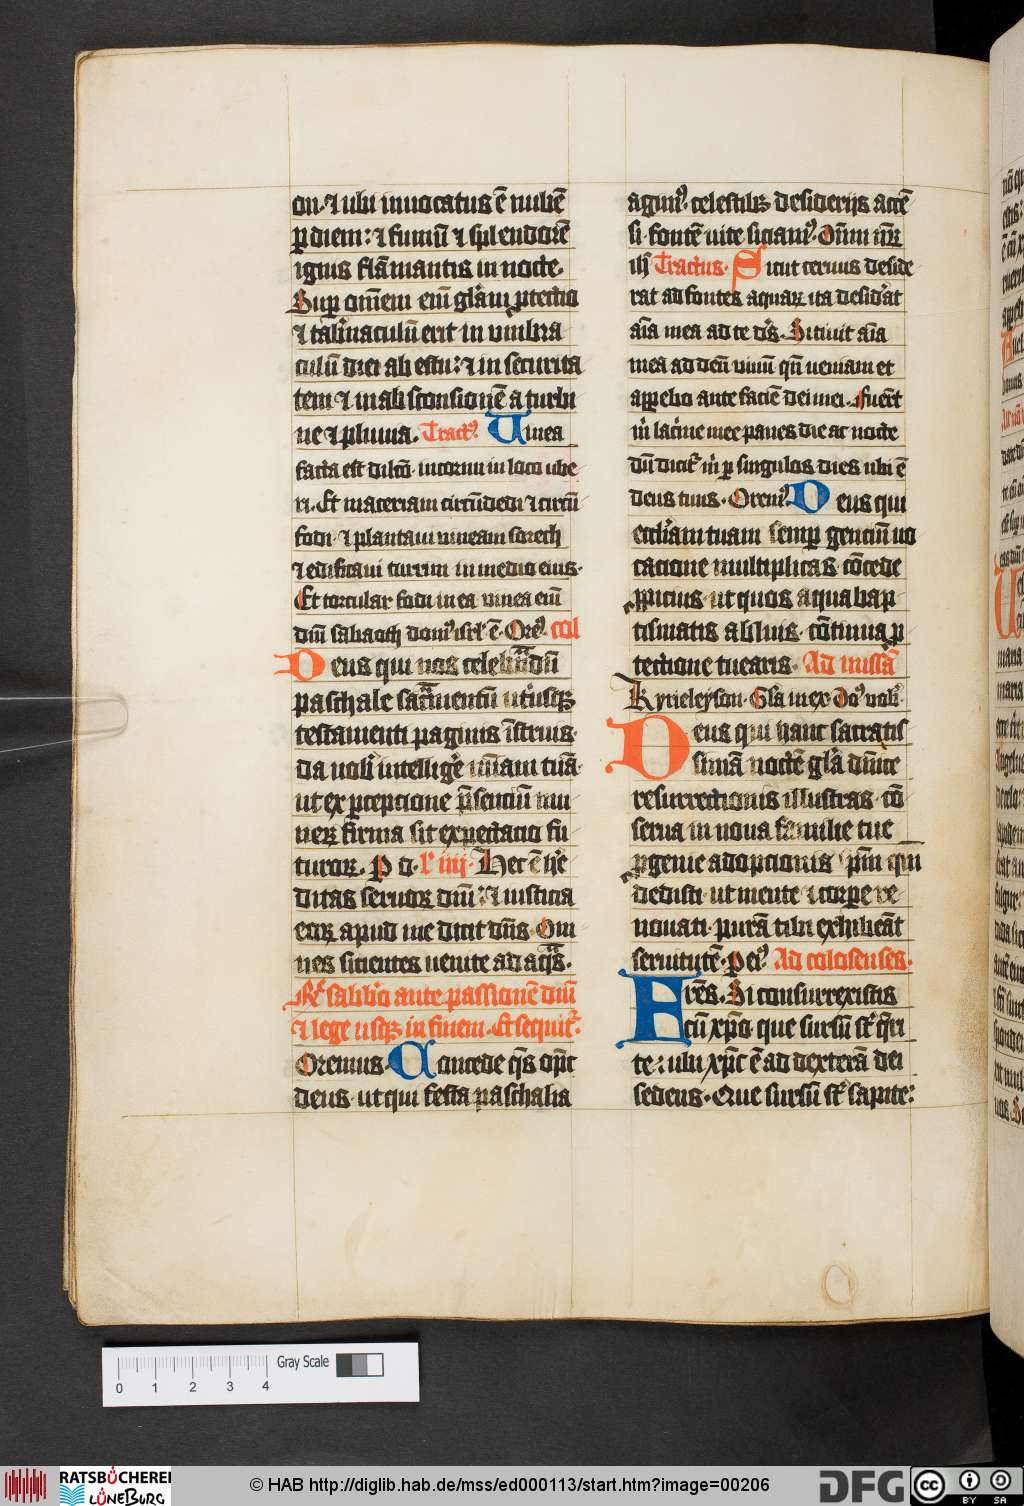 on· ⁊ ubi inuocatus ē nubē
ꝑ diem: ⁊ fumū ⁊ splendorē
ignis flāmantis in nocte·
Suꝑ om̄em eīm gl̄am ꝓtectio
⁊ tab̄naculū erit in vmbra
culū diei ab estu: ⁊ in securita
tem ⁊ in absconsionē a turbi
ne ⁊ pluuia. Tractꝰ. Uinea
facta est dilc̄o· in cornu in loco ube
ri· Et maceriam circūdedi ⁊ circū
fodi· ⁊ plantaui uineam sorech
⁊ edificaui turrim in medio eius·
Et torcular fodi in ea vinea eīm
dn̄i sabaoth domꝰ isrl̄ ē· Orēꝰ· coll
Deus qui nos celebrādū
paschale sac̄mentū ut̄usqꝫ
testamenti paginis īstruis·
da nobͥ intelliḡe mīam tuā·
ut ex ꝑcepcione p̄senciū mu
neꝝ firma sit expectacio fu
turoꝝ. P d· lͥ iiij· Hec ē h̄e
ditas seruoꝝ dn̄i: ⁊ iusticia
eoꝝ apud me dicit dn̄s· Om
nes sicientes uenite ad aqͣs·
Rͤ sabb̄o ante passionē dn̄i
⁊ lege usqꝫ in finem· Et sequitͬ·
Oremus· Concede q̄s om̄pc
deus· ut qui festa paschalia
agimꝰ· celestibꝫ desiderijs accē
si· fontē uite siciamꝰ· Dn̄m nr̄m
ih̄ Tractus· Sicut ceruus deside
rat ad fontes aquaꝝ ita desid̄at
aīa mea ad te dꝰs· Sitiuit aīa
mea ad deū viuū qn̄ ueniam et
apparebo ante faciē dei mei· Fuer̄t
m̄ lac̄me mee panes die ac nocte
dū dicitͬ m̄ ꝑ singulos dies ubi ē
deus tuus· Oremꝰ Deus qui
eccl̄iam tuam semꝑ genciū uo
catione multiplicas· cōcede
ꝓpicius· ut quos aqua bap
tismatis abluis· cōtinua ꝓ
tectione tuearis· Ad missā
Kyrieleyson· Gl̄a in ex· Dn̄ꝰ vobͥ·
Deus qui hanc sacratis
simā noctē gl̄a dn̄ice
resurrectionis illustras· cō
serua in noua familie tue
ꝓgenie adopcionis spm̄ quē
dedisti· ut mente ⁊ corpere re
nouati· purā tibi exhibeāt
seruitutē· ꝑ eīꝰ Ad colosenses·
Fres· Si consurrexistis
cū xp̄o· que sursū st̄ q̄ri
te: ubi xp̄c ē ad dexterā dei
sedens· Que sursū st̄ sapite:
Gray Scale
0 1 2 3 4
RATSBÜCHEREI
LÜNEBURG
© HAB http://diglib.hab.de/mss/ed000113/start.htm?image=00206
DFG
cc
BY SA